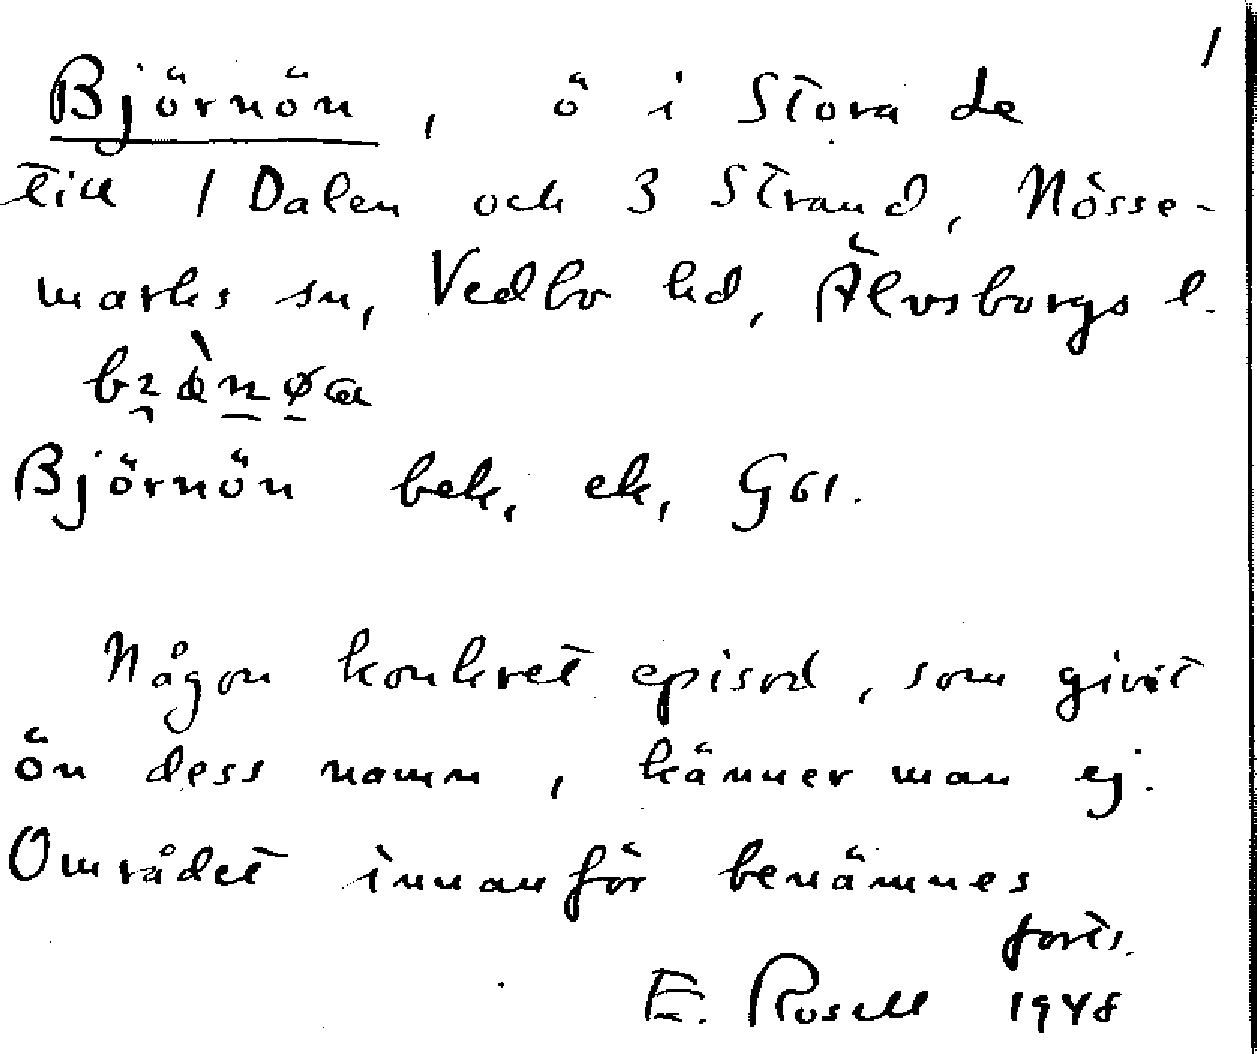 1
Björnön, ö i Stora de
till 1 Dalen och 3 Strand, Nösse-
marks sn, Vedbo hd, Älvsborgs l.
Björnön bek, ek, G61.
Någon konkret episod, som givit
ön dess namn, känner man ej.
Området innanför benämnes
forts.
E. Rosell 1948